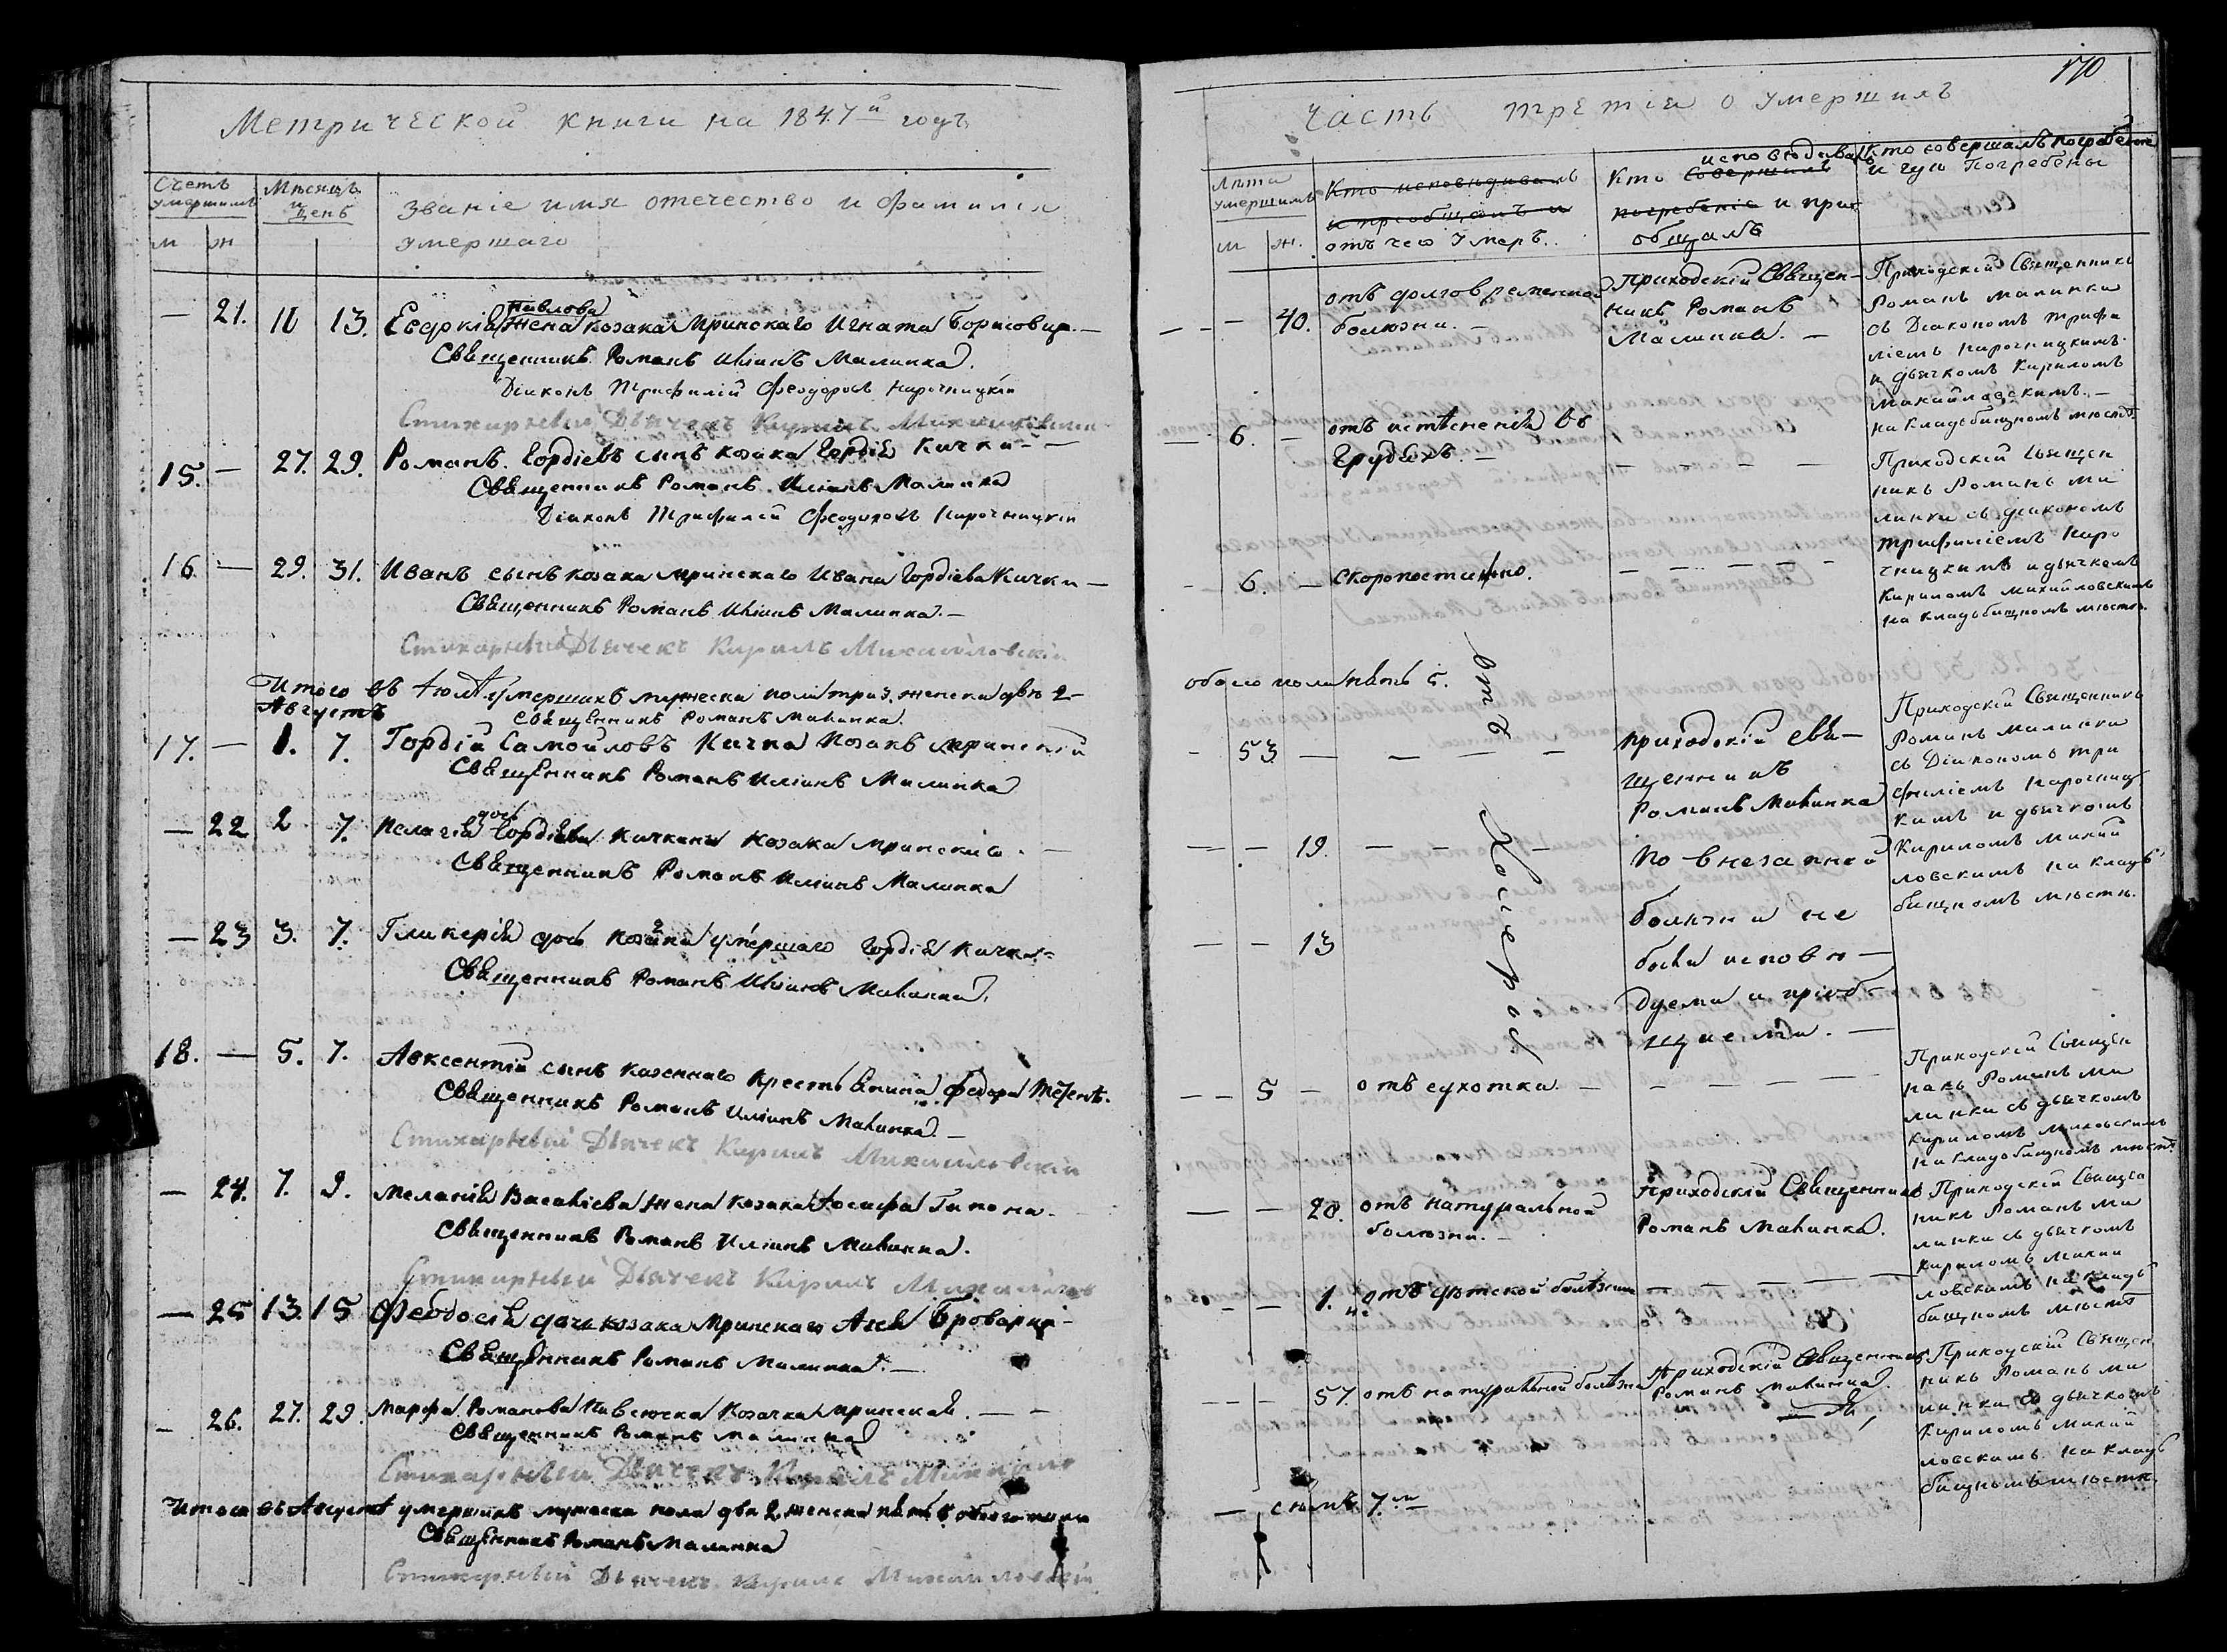 Метрической книги на 1847й годъ
Счетъ умершихъ
Мѣсяцъ и день
Званіе имя отечество и фамилія
умершаго
м ж
— 21. 11 13. Евдокія Павлова жена козака Мринскаго Игната Борисовца. —
Священникъ Романъ Иліинъ Малинка.
Діаконъ Трифилій Феодоровъ Нарочницкій
Стихарный Дьячекъ Кирилъ Михайловскій
15. — 27. 29. Романъ Гордіевъ сынъ козака Гордія Кички — —
Священникъ Романъ Иліинъ Малинка
Діаконъ Трифилій Феодоровъ Нарочницкій
16. — 29. 31. Иванъ сынъ козака мринскаго Ивана Гордіева Кички —
Священникъ Романъ Иліинъ Малинка. —
Стихарный Дьячекъ Кирилъ Михайловскій
Итого въ Іюлѣ умершихъ мужеска пола три 3. женска двѣ 2 —
Августъ
Священникъ Романъ Малинка.
17. — 1. 7. Гордій Самойловъ Кичка козакъ мринскій
Священникъ Романъ Иліинъ Малинка
— 22 2 7. Пелагія дочь Гордіева Кичкина козака мринскаго. —
Священникъ Романъ Иліинъ Малинка
— 23 3. 7. Гликерія дочь козака умершаго Гордія Кички —
Священникъ Романъ Иліинъ Малинка.
18. — 5. 7. Авксентій сынъ казеннаго крестьянина Федора
Священникъ Романъ Иліинъ Малинка. —
Стихарный Дьячекъ Кирилъ Михайловскій
— 24. 7. 9. Меланія Василіева жена козака Іосифа Гапона.
Священникъ Романъ Иліинъ Малинка.
Стихарный Дьячекъ Кирилъ Михайловскій
— 25 13. 15 Феодосія дочь козака Мринскаго Бровария —
Священникъ Романъ Малинка. —
— 26. 27. 29. Марфа Романова козачка мринская. — —
Священникъ Романъ Малинка
Стихарный Дьячекъ Кирилъ
Итого въ Августѣ умершихъ мужеска пола два 2, женска пять 5 обоего пола
Священникъ Романъ Малинка
Стихарный Дьячекъ Кирилъ Михайловскій
170
Часть третія о умершихъ
Лѣта умершихъ
Кто исповѣдывалъ
и пріобщалъ и
отъ чего умеръ..
Кто совершалъ исповѣдывалъ
погребеніе и пріобщалъ
Кто совершалъ погребеніе
и гдѣ погребены
м ж.
— — 40. отъ долговременной
болѣзни. —
Приходскій Священникъ Романъ
Малинка. —
Приходскій Священникъ
Романъ Малинка
съ Діакономъ Трифиліемъ Нарочницкимъ
и дьячкомъ Кириломъ
Михайловскимъ. —
на кладбищномъ мѣстѣ
— 6. — отъ истѣсненія въ
грудяхъ. —
— — — —
Приходскій Священникъ Романъ Малинка съ діакономъ
Трифиліемъ Нарочницкимъ и дьячкомъ
Кириломъ Михайловскимъ
на кладбищномъ мѣстѣ.
— 6. — Скоропостижно.
— — — — —
обоего пола пять 5.
— 53 — — — —
отъ Холеры
приходскій Священникъ
Романъ Малинка
Приходскій Священникъ
Романъ Малинка
съ Діакономъ Трифиліемъ Нарочницкимъ и дьячкомъ
Кириломъ Михайловскимъ на кладбищномъ мѣстѣ.
— — 19. — — —
По внезапной
— — 13
болѣзни не
были исповѣдуемы и пріобщаемы. —
— — 5 — отъ сухотки. —
— — — — —
Приходскій Священникъ Романъ Малинка съ дьячкомъ
Кириломъ
на кладбищномъ мѣстѣ
— — 20. отъ натуральной
болѣзни. —
Приходскій Священникъ
Романъ Малинка.
Приходскій Священникъ Романъ Малинка съ дьячкомъ
Кириломъ Михайловскимъ на кладбищномъ мѣстѣ
— — 1. отъ дѣтской болѣзни
— — — — — —
— — 57. отъ натуральной болѣзни
Приходскій Священникъ
Романъ Малинка.
Приходскій Священникъ Романъ Малинка съ дьячкомъ
Кириломъ Михайловскимъ на кладбищномъ мѣстѣ
— семь 7.